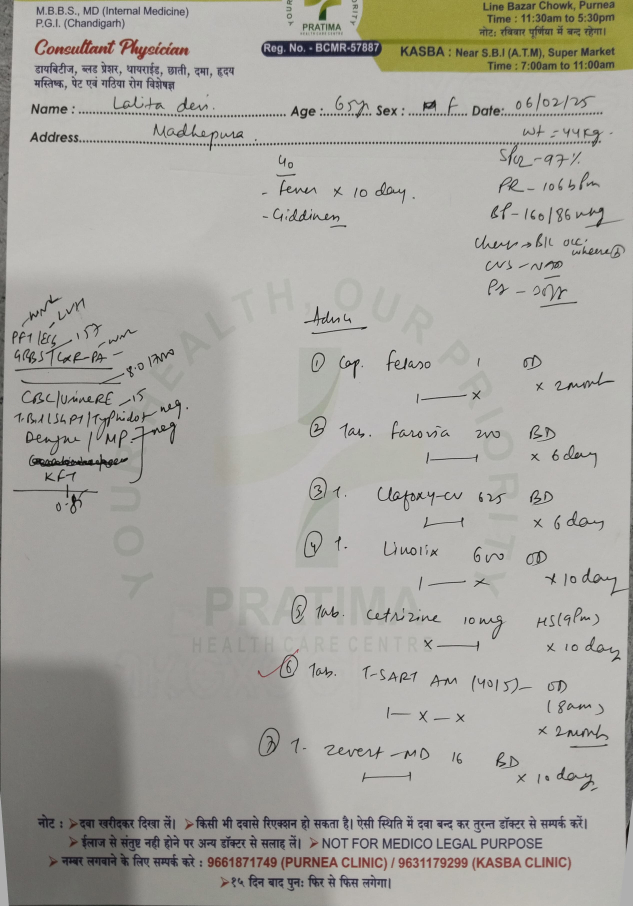 M.B.B.S., MD (Internal Medicine)
P.G.I. (Chandigarh)
Consultant Physician
डायबिटीज, ब्लड प्रेशर, थायराईड, छाती, दमा, हृदय
मस्तिष्क, पेट एवं गठिया रोग विशेषज्ञ
PRATIMA
HEALTH CARE CENTRE
Reg. No. - BCMR-57887
Line Bazar Chowk, Purnea
Time : 11:30am to 5:30pm
नोट: रविवार पूर्णिया में बन्द रहेगा।
KASBA : Near S.B.I (A.T.M), Super Market
Time : 7:00am to 11:00am
Name : Lalita devi. Age : 65y Sex : F Date: 06/02/25
Address Madhepura.
Wt = 44kg.
SPO2 - 97%
PR - 106 bpm
BP - 160/86 mmhg
Chest → B/L occ. wheeze
CVS - NAD
c/o
- Fever x 10 day.
- Giddiness
PFT/ECG
GRBS/CXR-PA - WNL
CBC/UrineRE - 15
T.Bil/SGPT/Typhidot - neg.
Dengue/MP - neg
KFT
0.85
Advice
① Cap. Feraso 1 OD
1——x x 2 month
② Tab. Farovia 200 BD
x 6 day
③ T. Clafoxy-CV 625 BD
x 6 day
④ T. Linolix 600 OD
1——x x 10 day
⑤ Tab. Cetrizine 10mg HS (9Pm)
x 10 day
⑥ Tab. T-SART AM (40/5) - OD
(8am)
1—x—x
x 2 month
⑦ T. Zevert-MD 16 BD
x 10 day
YOUR HEALTH OUR PRIORITY
PRATIMA
HEALTH CARE CENTRE
नोट : ➤दवा खरीदकर दिखा लें। ➤किसी भी दवासे रिएक्शन हो सकता है। ऐसी स्थिति में दवा बन्द कर तुरन्त डॉक्टर से सम्पर्क करें।
➤ईलाज से संतुष्ट नही होने पर अन्य डॉक्टर से सलाह लें। ➤NOT FOR MEDICO LEGAL PURPOSE
➤नम्बर लगवाने के लिए सम्पर्क करे : 9661871749 (PURNEA CLINIC) / 9631179299 (KASBA CLINIC)
➤१५ दिन बाद पुनः फिर से फिस लगेगा।